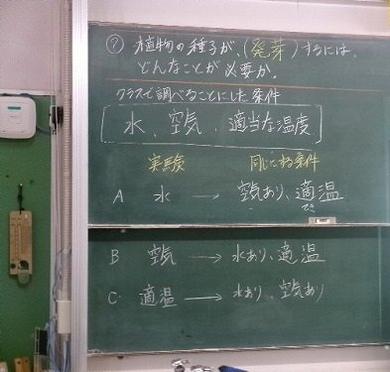 ? 植物の種子が、(発芽)するには、
どんなことが必要か。
クラスで調べることにした条件
水、空気、適当な温度
実験 同じにする条件
A 水 → 空気あり、適温
B 空気 → 水あり、適温
C. 適温 → 水あり、空気あり